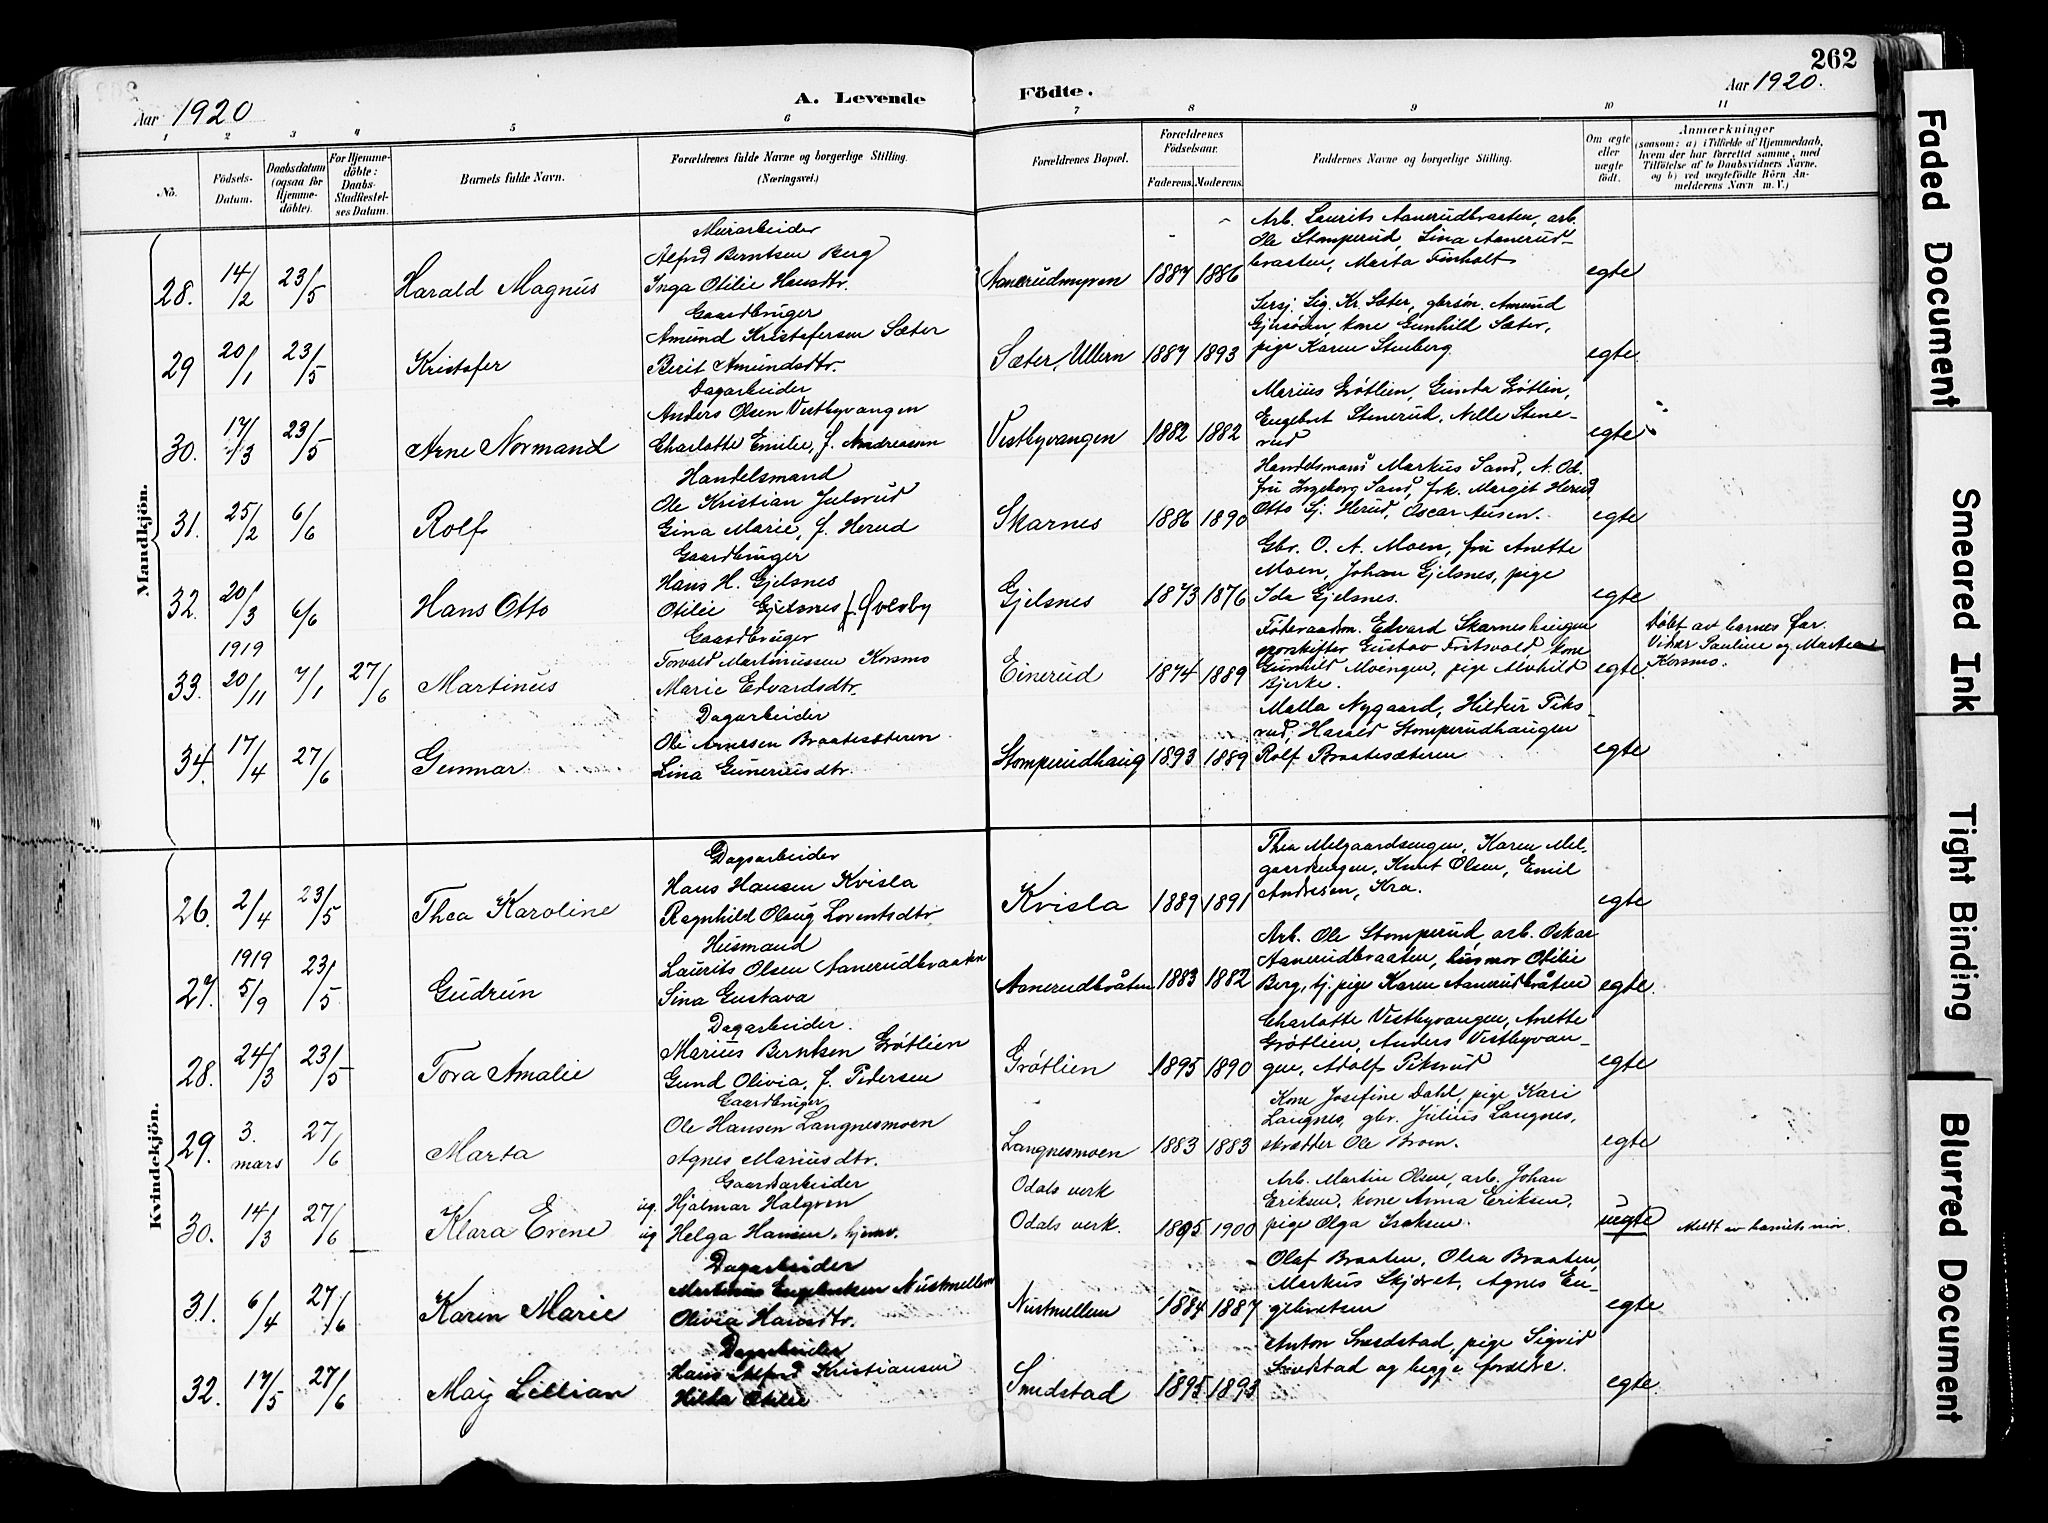 262
Aar 1920
A. Levende
Födte.
Aar 1920.
1 2 3 4 5 6 7 8 9 10 11
No.
Födsels-
Datum.
Daabsdatum
(ogsaa for
Hjemme-
döbte).
For Hjemme-
döbte:
Daabs-
Stadfæstel-
ses Datum.
Barnets fulde Navn.
Forældrenes fulde Navne og borgerlige Stilling.
(Næringsvei.)
Forældrenes Bopæl.
Forældrenes
Födselsaar.
Faderens. Moderens.
Faddernes Navne og borgerlige Stilling.
Om ægte
eller
uægte
födt.
Anmærkninger
(saasom: a) i Tilfælde af Hjemmedaab,
hvem der har forrettet samme, med
Tilföielse af to Daabsvidners Navne,
og b) ved uægtefödte Börn An-
melderens Navn m. V.)
Mandkjön.
28. 14/2 23/5 Harald Magnus
Murarbeider
Alfred Berntsen Berg
Inga Otilie Hansdtr.
Aanerudmyren 1887 1886
Arb. Laurits Aanerudbraaten, arb.
Ole Stomperud, Lina Aanerud-
braaten, Marta Finholt
egte
29 20/1 23/5 Kristofer
Gaardbruger
Amund Kristofersen Sæter
Berit Amundsdtr.
Sæter, Ullern 1887 1893
Sersj. Sig. Kr. Sæter, gbrsøn. Amund
kone Gunhild Sæter,
pige Karen Stenberg.
egte
30. 17/3 23/5 Arne Normand
Dagarbeider
Anders Olsen Vestbyvangen
Charlotte Emilie, f. Andreassen
Vestbyvangen 1882 1882
Marius Grøtlien, Gunda Grøtlien,
Engebret Stenerud, Nelle Stene-
rud
egte
31. 25/2 6/6 Rolf
Handelsmand
Ole Kristian Julsrud
Gina Marie, f. Herud
Skarnes 1886 1890
Handelsmand Markus Sand, N. Od.
fru Ingeborg Sand, frk. Margit Herud
Otto Herud, Oscar Ausen.
egte
32. 20/3 6/6 Hans Otto
Gaardbruger
Hans H. Gjelsnes
Otilie Gjelsnes f. Øvleby
Gjelsnes 1873 1876
Gbr. O. A. Moen, fru Anette
Moen, Johan Gjelsnes, pige
Ida Gjelsnes.
egte
33. 1919 20/11 7/1 27/6 Martinus
Gaardbruger
Torvald Martinussen Korsmo
Marie Edvardsdtr.
Einerud 1874 1889
Føderaadsm. Edvard Skarneshaugen
sporskifter Gustav Fritsvold, kone
Gunhild Moengen, pige Alvhild
Bjerke.
egte
Døbt av barnes far.
Vidner Pauline og Martea
Korsmo.
34. 17/4 27/6 Gunnar
Dagarbeider
Ole Arnesen Braatesæteren
Lina Guneriusdtr.
Stomperudhaug 1893 1889
Malla Nygaard, Hildur Fiks-
rud, Harald Stomperudhaugen
Rolf Braatesæteren
egte
Kvindekjön.
26. 2/4 23/5 Thea Karoline
Dagsarbeider
Hans Hansen Kvisla
Ragnhild Olaug Lorentsdtr.
Kvisla 1889 1891
Thea Melgaardsengen, Karen Mel-
gaardsengen, Knut Olsen, Emil
Andresen, Kra.
egte
27. 1919 5/9 23/5 Gudrun
Husmand
Laurits Olsen Aanerudbraaten
Lina Gustava
Aanerudbråten 1883 1882
Arb. Ole Stomperud, arb. Oskar
Aanerudbraaten, husmor Otilie
Berg, tj. pige Karen Aanerudbråten
egte.
28. 24/3 23/5 Tora Amalie
Dagarbeider.
Marius Berntsen Grøtlien
Gund Olivia, f. Pedersen
Grøtlien 1895 1890
Charlotte Vestbyvangen, Anette
Grøtlien, Anders Vestbyvan-
gen, Adolf Piksrud
egte
29. 3. mars 27/6 Marta
Gaardbruger
Ole Hansen Langnesmoen
Agnes Mariusdtr.
Langnesmoen 1883 1883
Kone Josefine Dahl, pige Kari
Langnes, gbr. Julius Langnes,
skrædder Ole Broen.
egte
30. 14/3 27/6 Klara Erene
Gaardsarbeider
ug. Hjalmar Halgven
ug Helga Hansen, hjemv.
Odals verk
Odals verk. 1895 1900
Arb. Martin Olsen, arb. Johan
Eriksen, kone Anna Eriksen,
pige Olga Isaksen.
uegte
Meldt av barnets mor.
31. 6/4 27/6 Karen Marie
Dagarbeider
Martinus Engebretsen Nustmellem
Olivia Hansdtr.
Nustmellem 1884 1887
Olaf Braaten, Olea Braaten,
Markus Skjøret, Agnes En-
gebretsen
egte
32. 17/5 27/6 Maij Lillian
Dagarbeider
Hans Alfred Kristiansen
Hilda Otilie
Smedstad 1895 1893
Anton Smedstad, pige Sigrid
Smedstad og begge forældre.
egte.
Faded Document
Smeared Ink
Tight Binding
Blurred Document